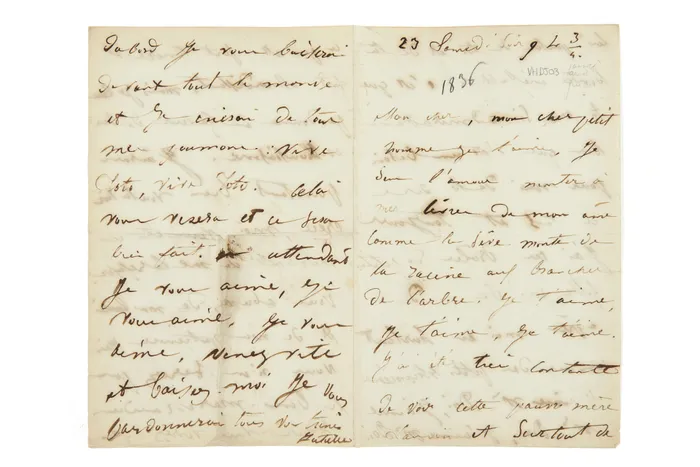 Dabord Je vous baiserai
devant tout le monde
et Je crierai de tous
mes poumons: Vive
Toto, vive Toto. Cela
vous vexera et ce sera
bien fait. attendant
Je vous aime, Je
vous aime, Je vous
aime, venez vite
et baisez-moi Je vous
pardonnerai tous vos
Juliette
23 Samedi soir 9 h 3/4.
1836
Mon cher, mon cher petit
homme Je t'aime, Je
sens l'amour monter à
mes lèvres de mon âme
comme la sève monte de
la racine aux branches
de l'arbre. Je t'aime,
Je t'aime, Je t'aime.
J'ai été très contente
de voir cette pauvre mère
et surtout de